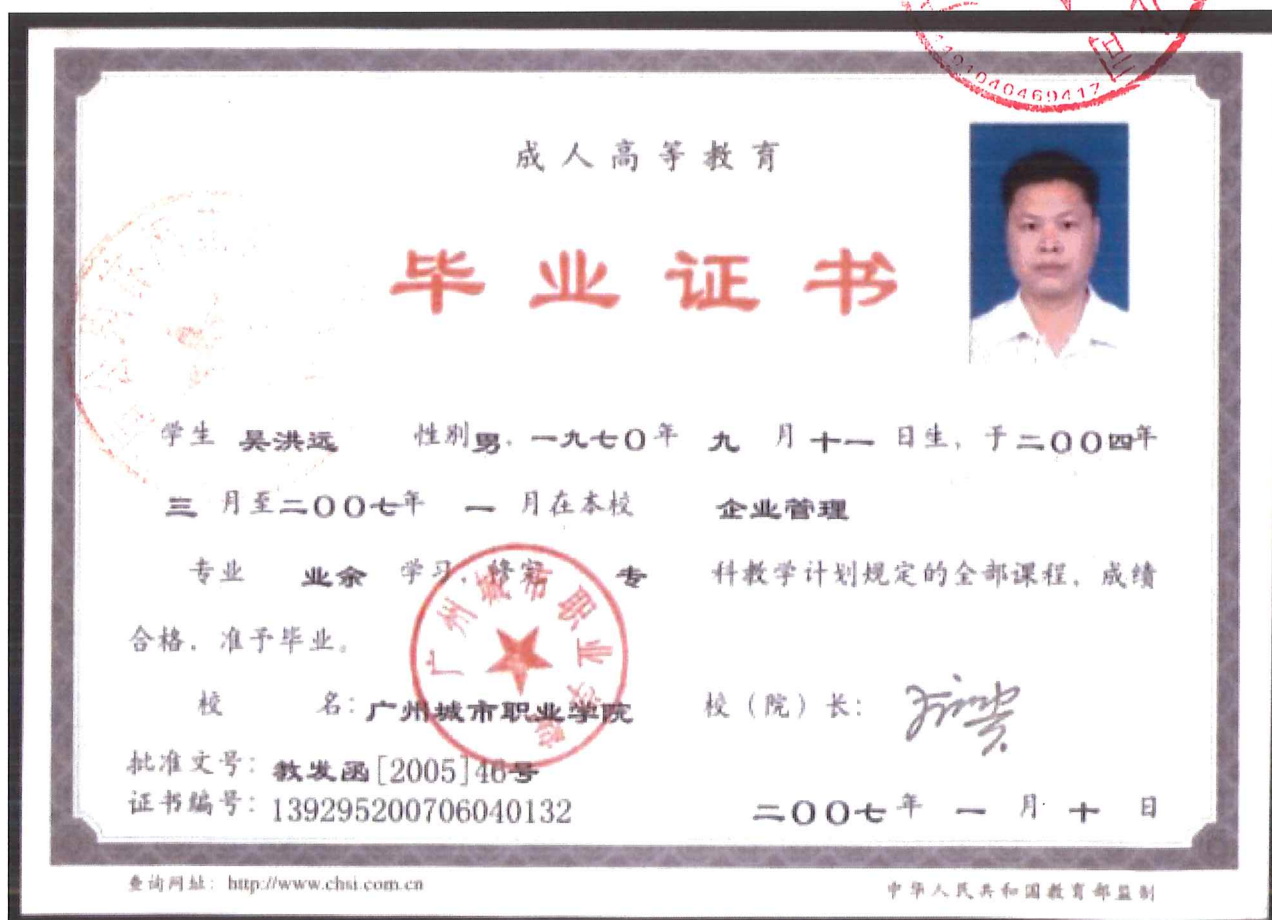 1101040469417
成人高等教育
毕业证书
学生 吴洪远 性别男，一九七〇年 九 月十一日生，于二〇〇四年
三 月至二〇〇七年 一 月在本校 企业管理
专业 业余 学习，修完 专 科教学计划规定的全部课程，成绩
合格，准予毕业。
广州城市职业学院
校 名：广州城市职业学院 校（院）长：
批准文号：教发函[2005]46号
证书编号：139295200706040132 二〇〇七年 一 月 十 日
查询网址：http://www.chsi.com.cn 中华人民共和国教育部监制